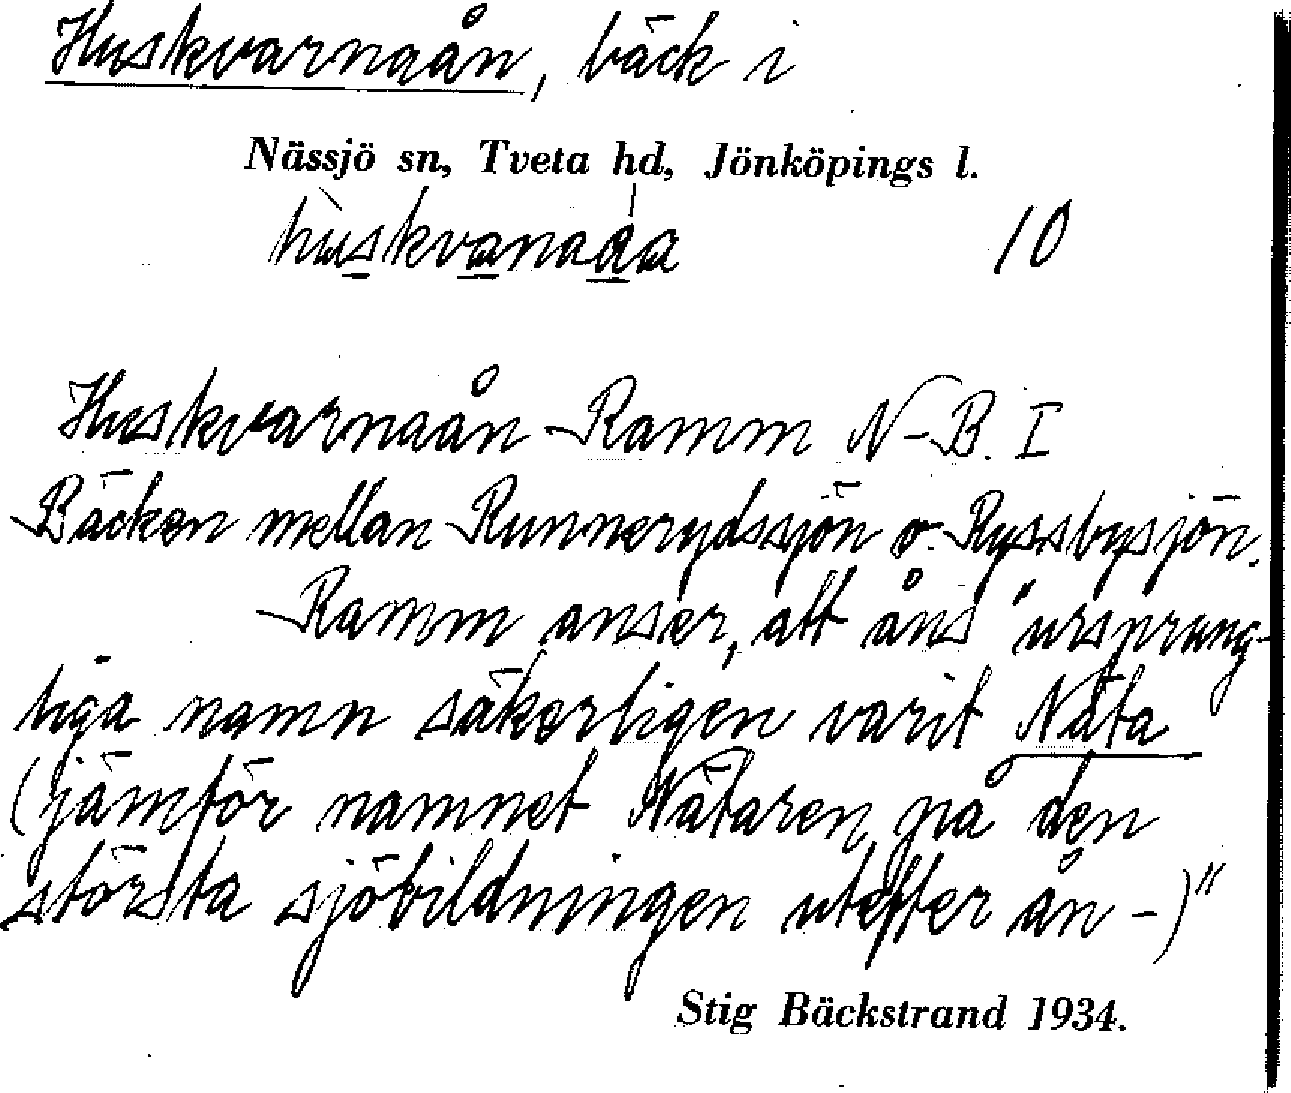 Huskvarnaån, bäck i
Nässjö sn, Tveta hd, Jönköpings l.
10
Huskvarnaån Ramm N-B. I
Bäcken mellan Runnerydssjön o. Ryssbysjön.
Ramm anser, att åns "ursprung-
liga namn säkerligen varit Näta
(jämför namnet Nätaren på den
största sjöbildningen utefter ån -)"
Stig Bäckstrand 1934.